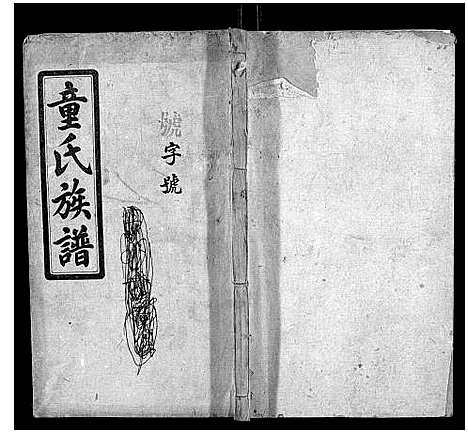 號
字號
童氏族譜